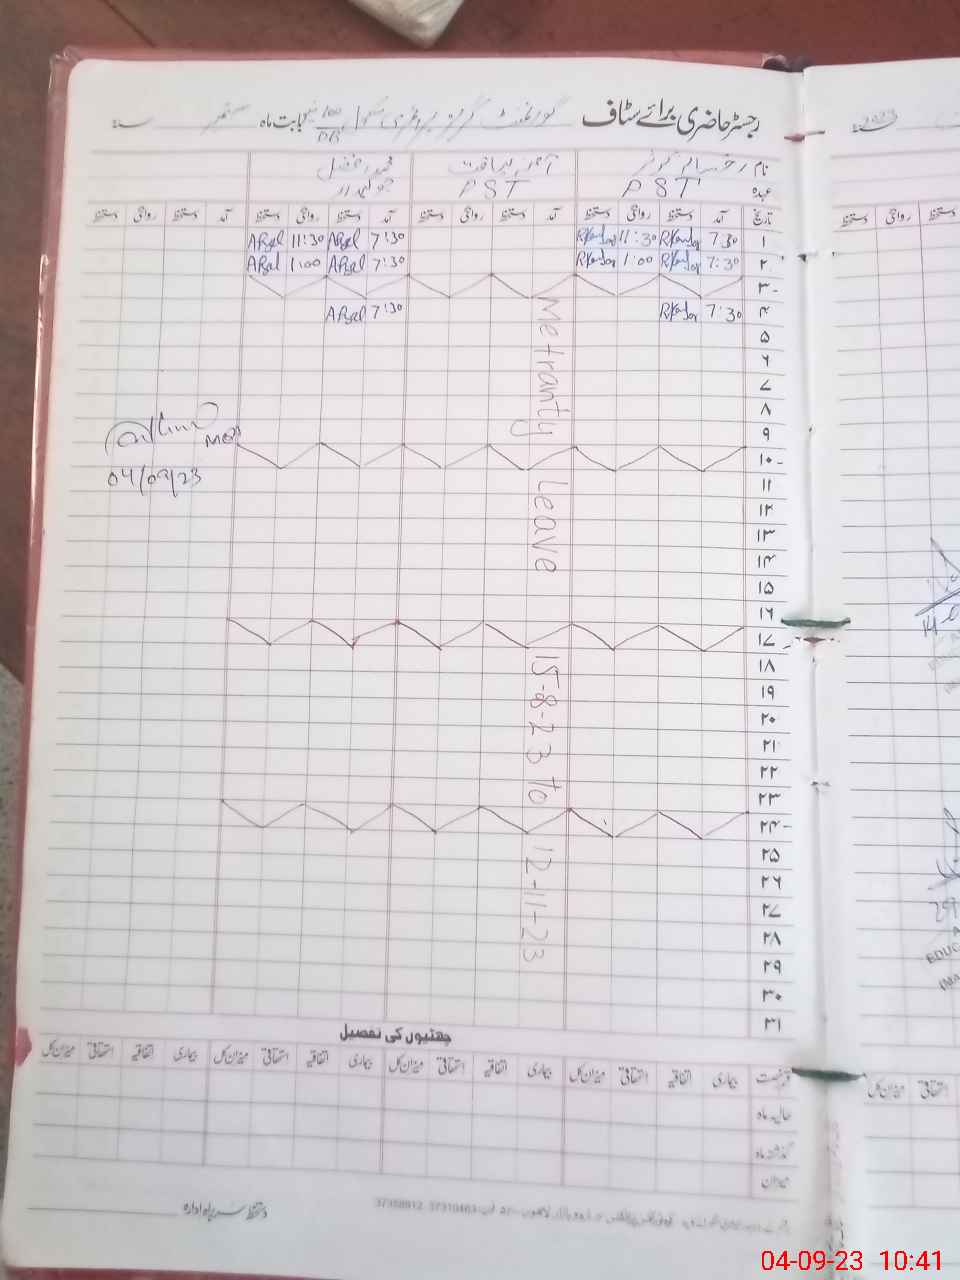 رجسٹر حاضری برائے سٹاف گورنمنٹ گرلز پرائمری سکول بابت ماہ ستمبر سنہ
نام رخسانہ کوثر آمنہ لیاقت محمد افضل
عہدہ PST PST چوکیدار
تاریخ آمد دستخط روانگی دستخط آمد دستخط روانگی دستخط آمد دستخط روانگی دستخط آمد دستخط روانگی دستخط
۱ 7:30 11:30 7:30 Afzal 11:30 Afzal
۲ 7:30 1:00 7:30 Afzal 1:00 Afzal
۳
۴ 7:30 7:30 Afzal
۵
۶
۷
۸
۹
۱۰
۱۱
۱۲
۱۳
۱۴
۱۵
۱۶
۱۷
۱۸
۱۹
۲۰
۲۱
۲۲
۲۳
۲۴
۲۵
۲۶
۲۷
۲۸
۲۹
۳۰
۳۱
Metranty Leave 15-8-23 to 12-11-23
04/09/23
چھٹیوں کی تفصیل
قسم رخصت بیماری اتفاقیہ استحقاقی میزان کل بیماری اتفاقیہ استحقاقی میزان کل بیماری اتفاقیہ استحقاقی میزان کل بیماری اتفاقیہ استحقاقی میزان کل
حالیہ ماہ
گذشتہ ماہ
میزان
دستخط سربراہ ادارہ
2023
04-09-23 10:41